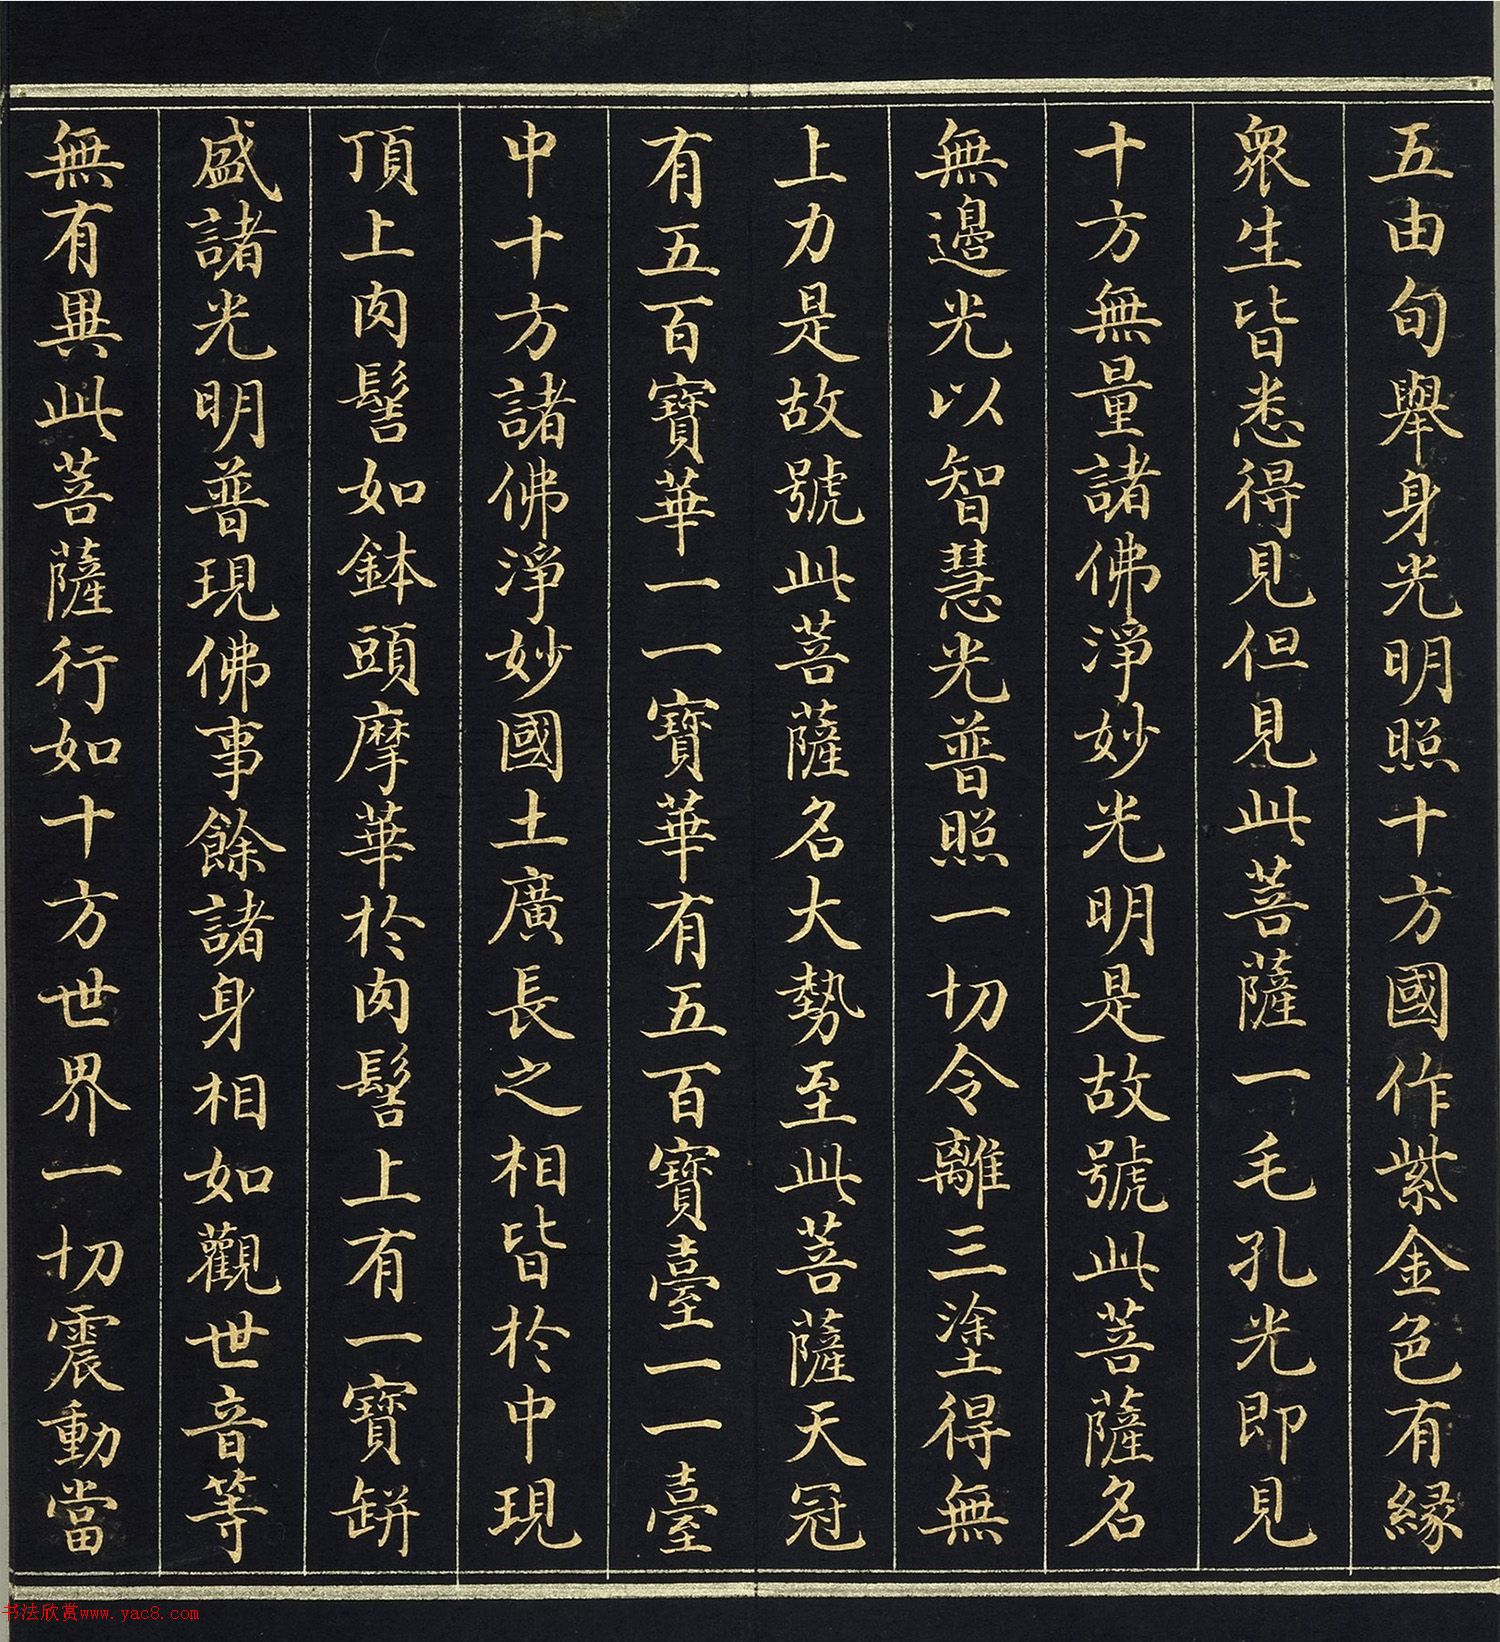 五由旬舉身光明照十方國作紫金色有緣
衆生皆悉得見但見此菩薩一毛孔光即見
十方無量諸佛淨妙光明是故號此菩薩名
無邊光以智慧光普照一切令離三塗得無
上力是故號此菩薩名大勢至此菩薩天冠
有五百寶華一一寶華有五百寶臺一一臺
中十方諸佛淨妙國土廣長之相皆於中現
頂上肉髻如鉢頭摩華於肉髻上有一寶缾
盛諸光明普現佛事餘諸身相如觀世音等
無有異此菩薩行如十方世界一切震動當
书法欣赏www.yac8.com